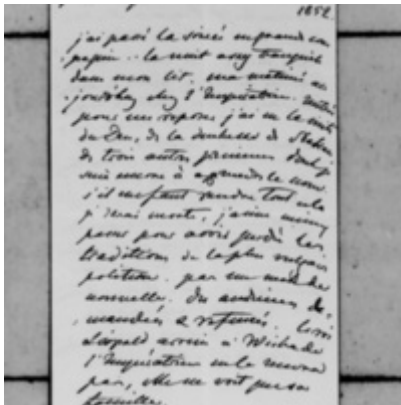 1852
j'ai passé la soirée en grande com
pagnie. la nuit assez tranquille
dans mon lit. ma matinée au
jourd'hui chez l'Impératrice.
pour me reposer j'ai eu la visite
du Duc, de la duchesse de
de trois autres princesses dont je
suis encore à apprendre le nom.
s'il me faut rendre tout cela
j'irai morte, j'aime mieux
passer pour avoir perdu les
traditions de la plus vulgaire
politesse. pas un mot de
nouvelle. des audiences de
mandées & refusées. le roi
Léopold arrive à Wiesbade
l'Impératrice ne le recevra
pas, elle ne voit que sa
famille.